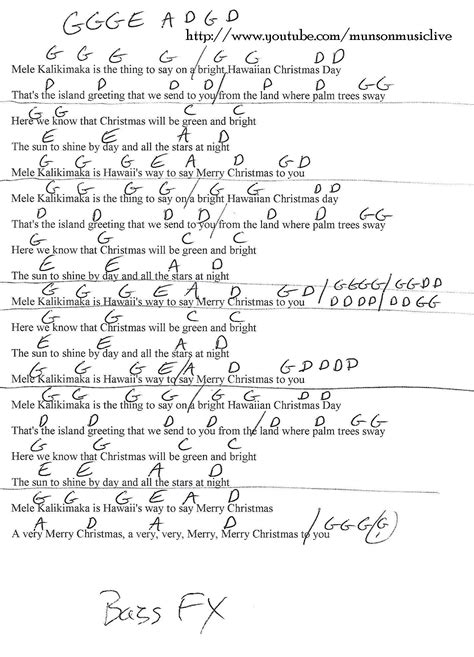 G G G E A D G D
http://www.youtube.com/munsonmusiclive
G G G G / G G D D
Mele Kalikimaka is the thing to say on a bright Hawaiian Christmas Day
D D D D / D D G G
That's the island greeting that we send to you from the land where palm trees sway
G G C C
Here we know that Christmas will be green and bright
E E A D
The sun to shine by day and all the stars at night
G G G E A D G D
Mele Kalikimaka is Hawaii's way to say Merry Christmas to you
G G G G / G G D D
Mele Kalikimaka is the thing to say on a bright Hawaiian Christmas day
D D D D / D D G G
That's the island greeting that we send to you from the land where palm trees sway
G G C C
Here we know that Christmas will be green and bright
E E A D
The sun to shine by day and all the stars at night
G G G E A D G D / G G G G / G G D D
Mele Kalikimaka is Hawaii's way to say Merry Christmas to you / D D D D / D D G G
G G C C
Here we know that Christmas will be green and bright
E E A D
The sun to shine by day and all the stars at night
G G G E / A D G D D D D
Mele Kalikimaka is Hawaii's way to say Merry Christmas to you
G G G G / G G D D
Mele Kalikimaka is the thing to say on a bright Hawaiian Christmas Day
D D D D D / D G G
That's the island greeting that we send to you from the land where palm trees sway
G G C C
Here we know that Christmas will be green and bright
E E A D
The sun to shine by day and all the stars at night
G G G E A D
Mele Kalikimaka is Hawaii's way to say Merry Christmas
A D A D / G G G (G)
A very Merry Christmas, a very, very, Merry, Merry Christmas to you
Bass FX